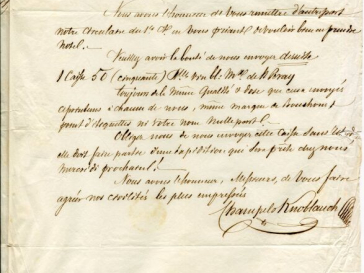 Nous avons l'honneur de vous remettre d'autre part
notre circulaire du 1er en vous priant de vouloir bien en prendre
note.
Veuillez avoir la bonté de nous envoyer de suite
1 Caisse 50 (cinquante) Blle
toujours de la même qualité que ceux envoyés
à chacun de nous, même marque de bouchons
point d'étiquettes ni votre nom nulle part.
Obligez nous de nous envoyer cette caisse dans
elle doit faire partie d'une expédition qui se prête chez nous
prochain.
Nous avons l'honneur, Messieurs, de vous faire
agréer nos civilités les plus empressées
Knoblauch